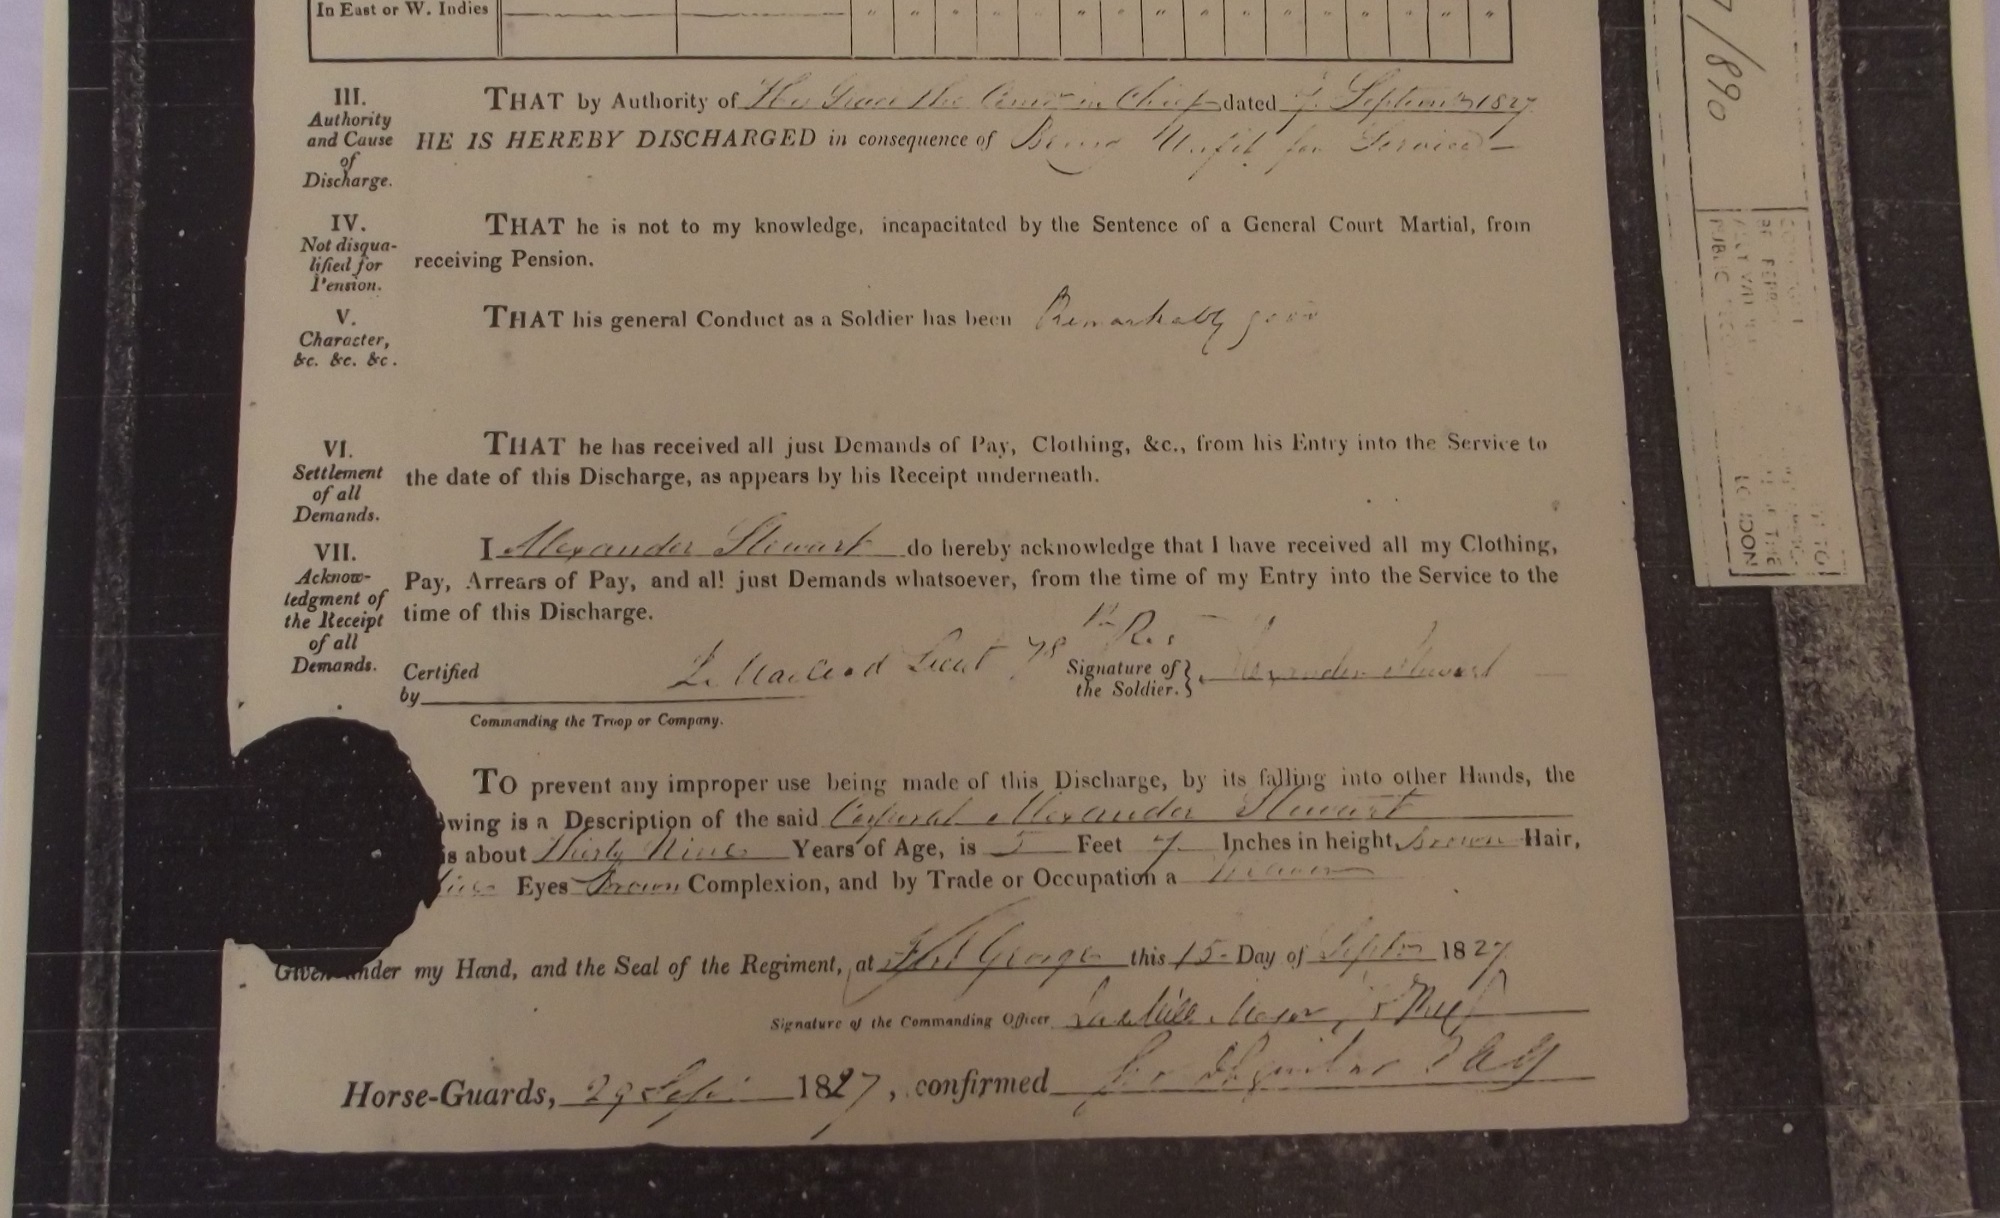 In East or W. Indies
III.
Authority
and Cause
of
Discharge.
THAT by Authority of His Grace the Comr in Chief dated 7 Septemr 1827
HE IS HEREBY DISCHARGED in consequence of Being Unfit for Service
IV.
Not disqua-
lified for
Pension.
THAT he is not to my knowledge, incapacitated by the Sentence of a General Court Martial, from
receiving Pension.
V.
Character,
&c. &c. &c.
THAT his general Conduct as a Soldier has been Remarkably good
VI.
Settlement
of all
Demands.
THAT he has received all just Demands of Pay, Clothing, &c., from his Entry into the Service to
the date of this Discharge, as appears by his Receipt underneath.
VII.
Acknow-
ledgment of
the Receipt
of all
Demands.
I Alexander Stewart do hereby acknowledge that I have received all my Clothing,
Pay, Arrears of Pay, and all just Demands whatsoever, from the time of my Entry into the Service to the
time of this Discharge.
Certified
by
L. Macleod Lieut 78th Regt
Commanding the Troop or Company.
Signature of
the Soldier.
Alexander Stewart
TO prevent any improper use being made of this Discharge, by its falling into other Hands, the
owing is a Description of the said Corporal Alexander Stewart
is about Thirty Nine Years of Age, is 5 Feet 7 Inches in height, Brown Hair,
Eyes Brown Complexion, and by Trade or Occupation a Weaver
Given under my Hand, and the Seal of the Regiment, at Fort George this 15 Day of Septem 1827
Signature of the Commanding Officer
Horse-Guards, 29 Sept 1827, confirmed
7/890